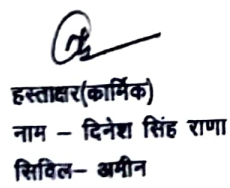 हस्ताक्षर(कार्मिक)
नाम – दिनेश सिंह राणा
सिविल– अमीन